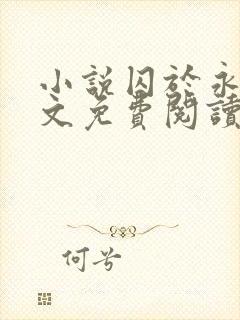 小說囚於永
文免費閱讀
何兮